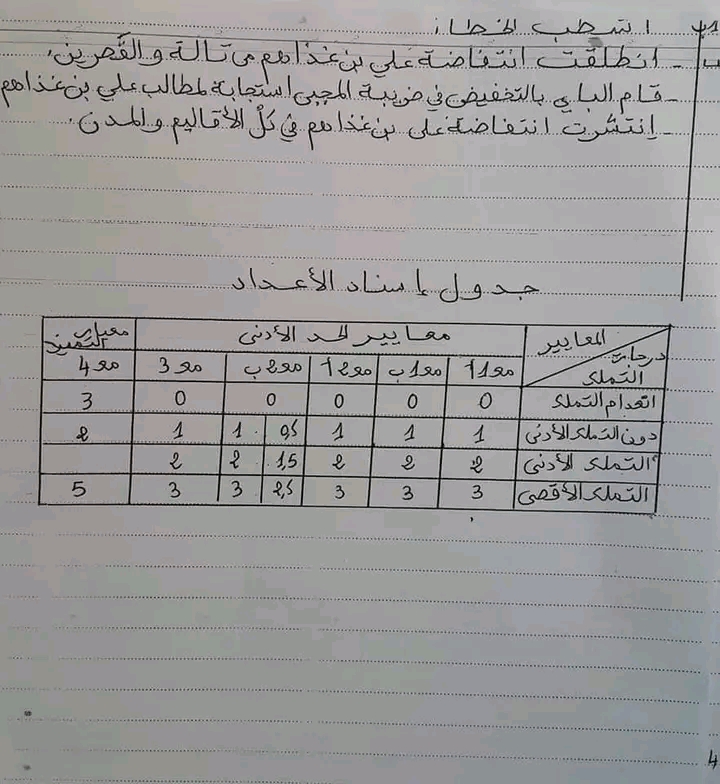 أشطب الخطأ:
- انطلقت انتفاضة علي بن غذاهم من تالة والقصرين.
- قام الباي بالتخفيض في ضريبة المجبى استجابة لمطالب علي بن غذاهم
- إنتشرت انتفاضة علي بن غذاهم في كلّ الأقاليم والمدن.
جدول إسناد الأعداد
المعايير درجات التملك معايير الحد الأدنى معيار التميز
مع1أ مع1ب مع2أ مع2ب مع3 مع4
انعدام التملك 0 0 0 0 0 3
دون التملك الأدنى 1 1 1 0,5 1 1 2
التملك الأدنى 2 2 2 1,5 2 2
التملك الأقصى 3 3 3 2,5 3 3 5
4